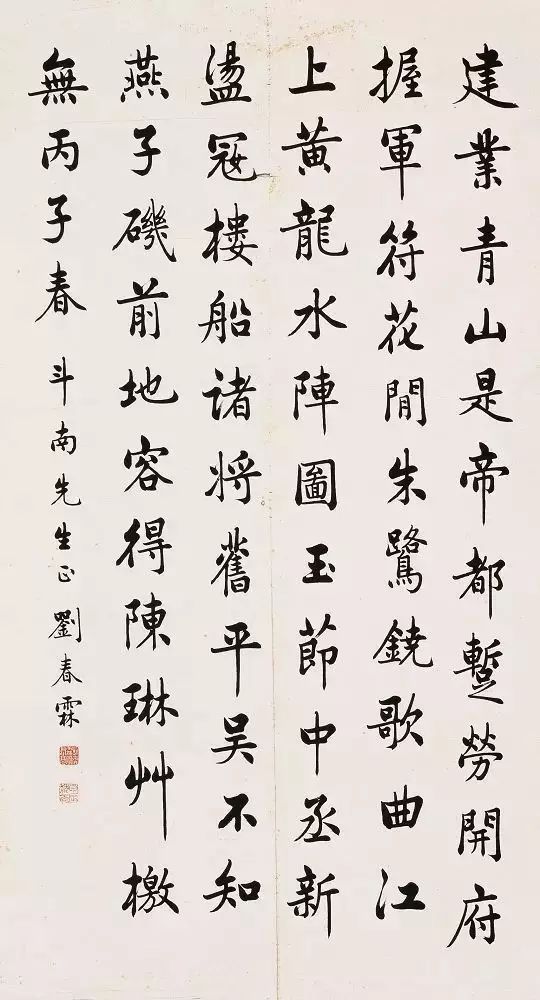 建業青山是帝都蹔勞開府
握軍符花閒朱鷺鐃歌曲江
上黃龍水陣圖玉節中丞新
盪寇樓船諸將舊平吳不知
燕子磯前地容得陳琳艸檄
無丙子春
斗南先生正 劉春霖